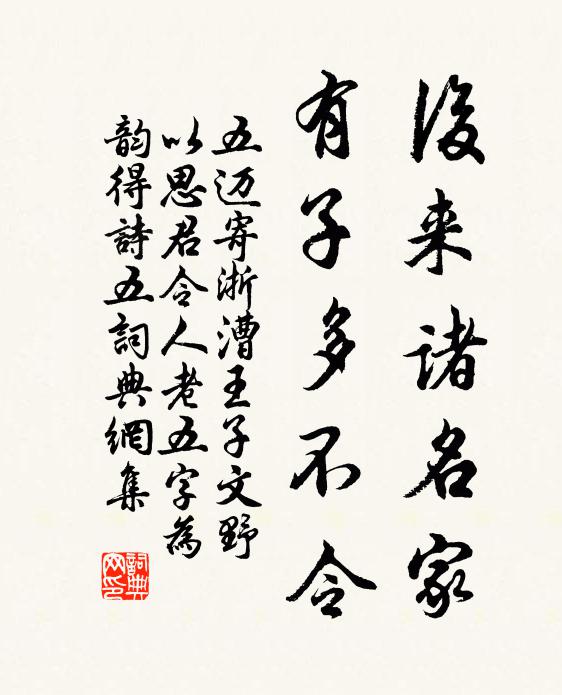 後来诸名家
有子多不令
五迈寄浙漕王子文野
以思君令人老五字為
韵得詩五詞典網集
詞典
网印